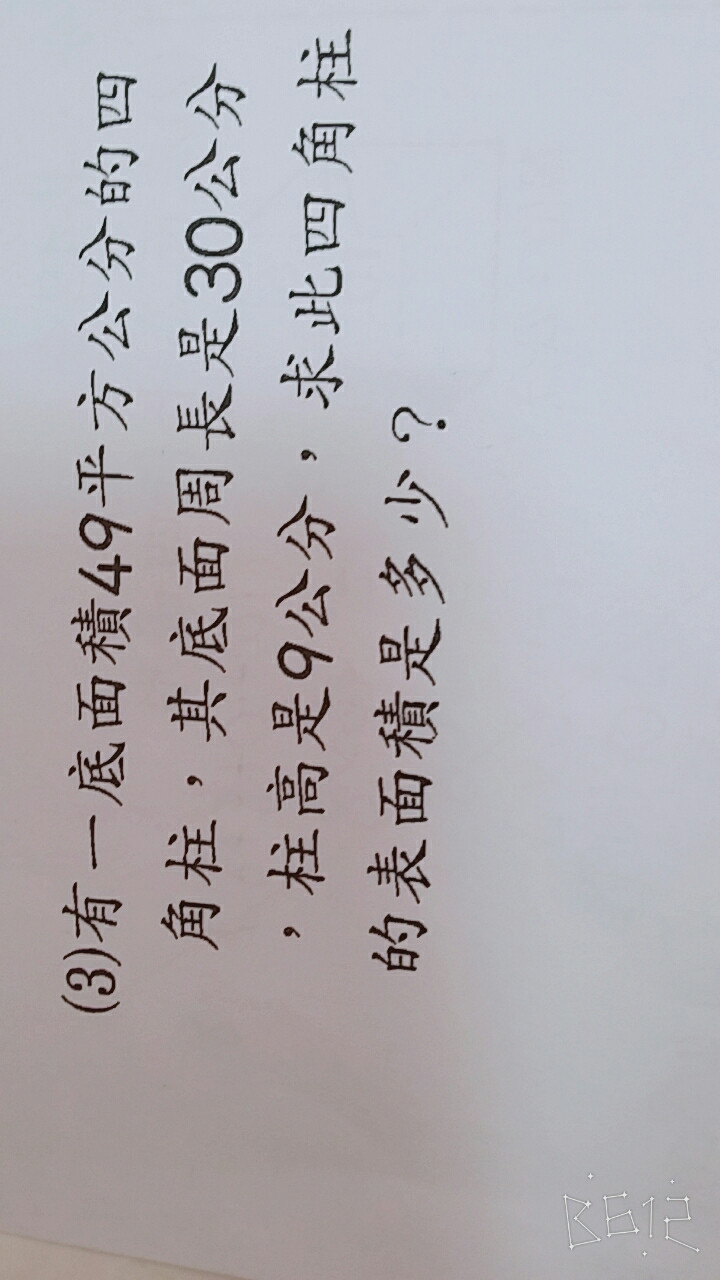 (3)有一底面積49平方公分的四
角柱，其底面周長是30公分
，柱高是9公分，求此四角柱
的表面積是多少？
B612